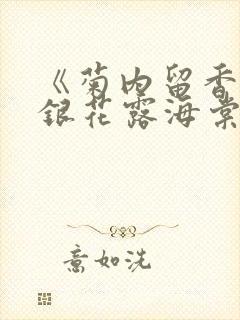 《菊内留香
銀花露海棠
意如洗